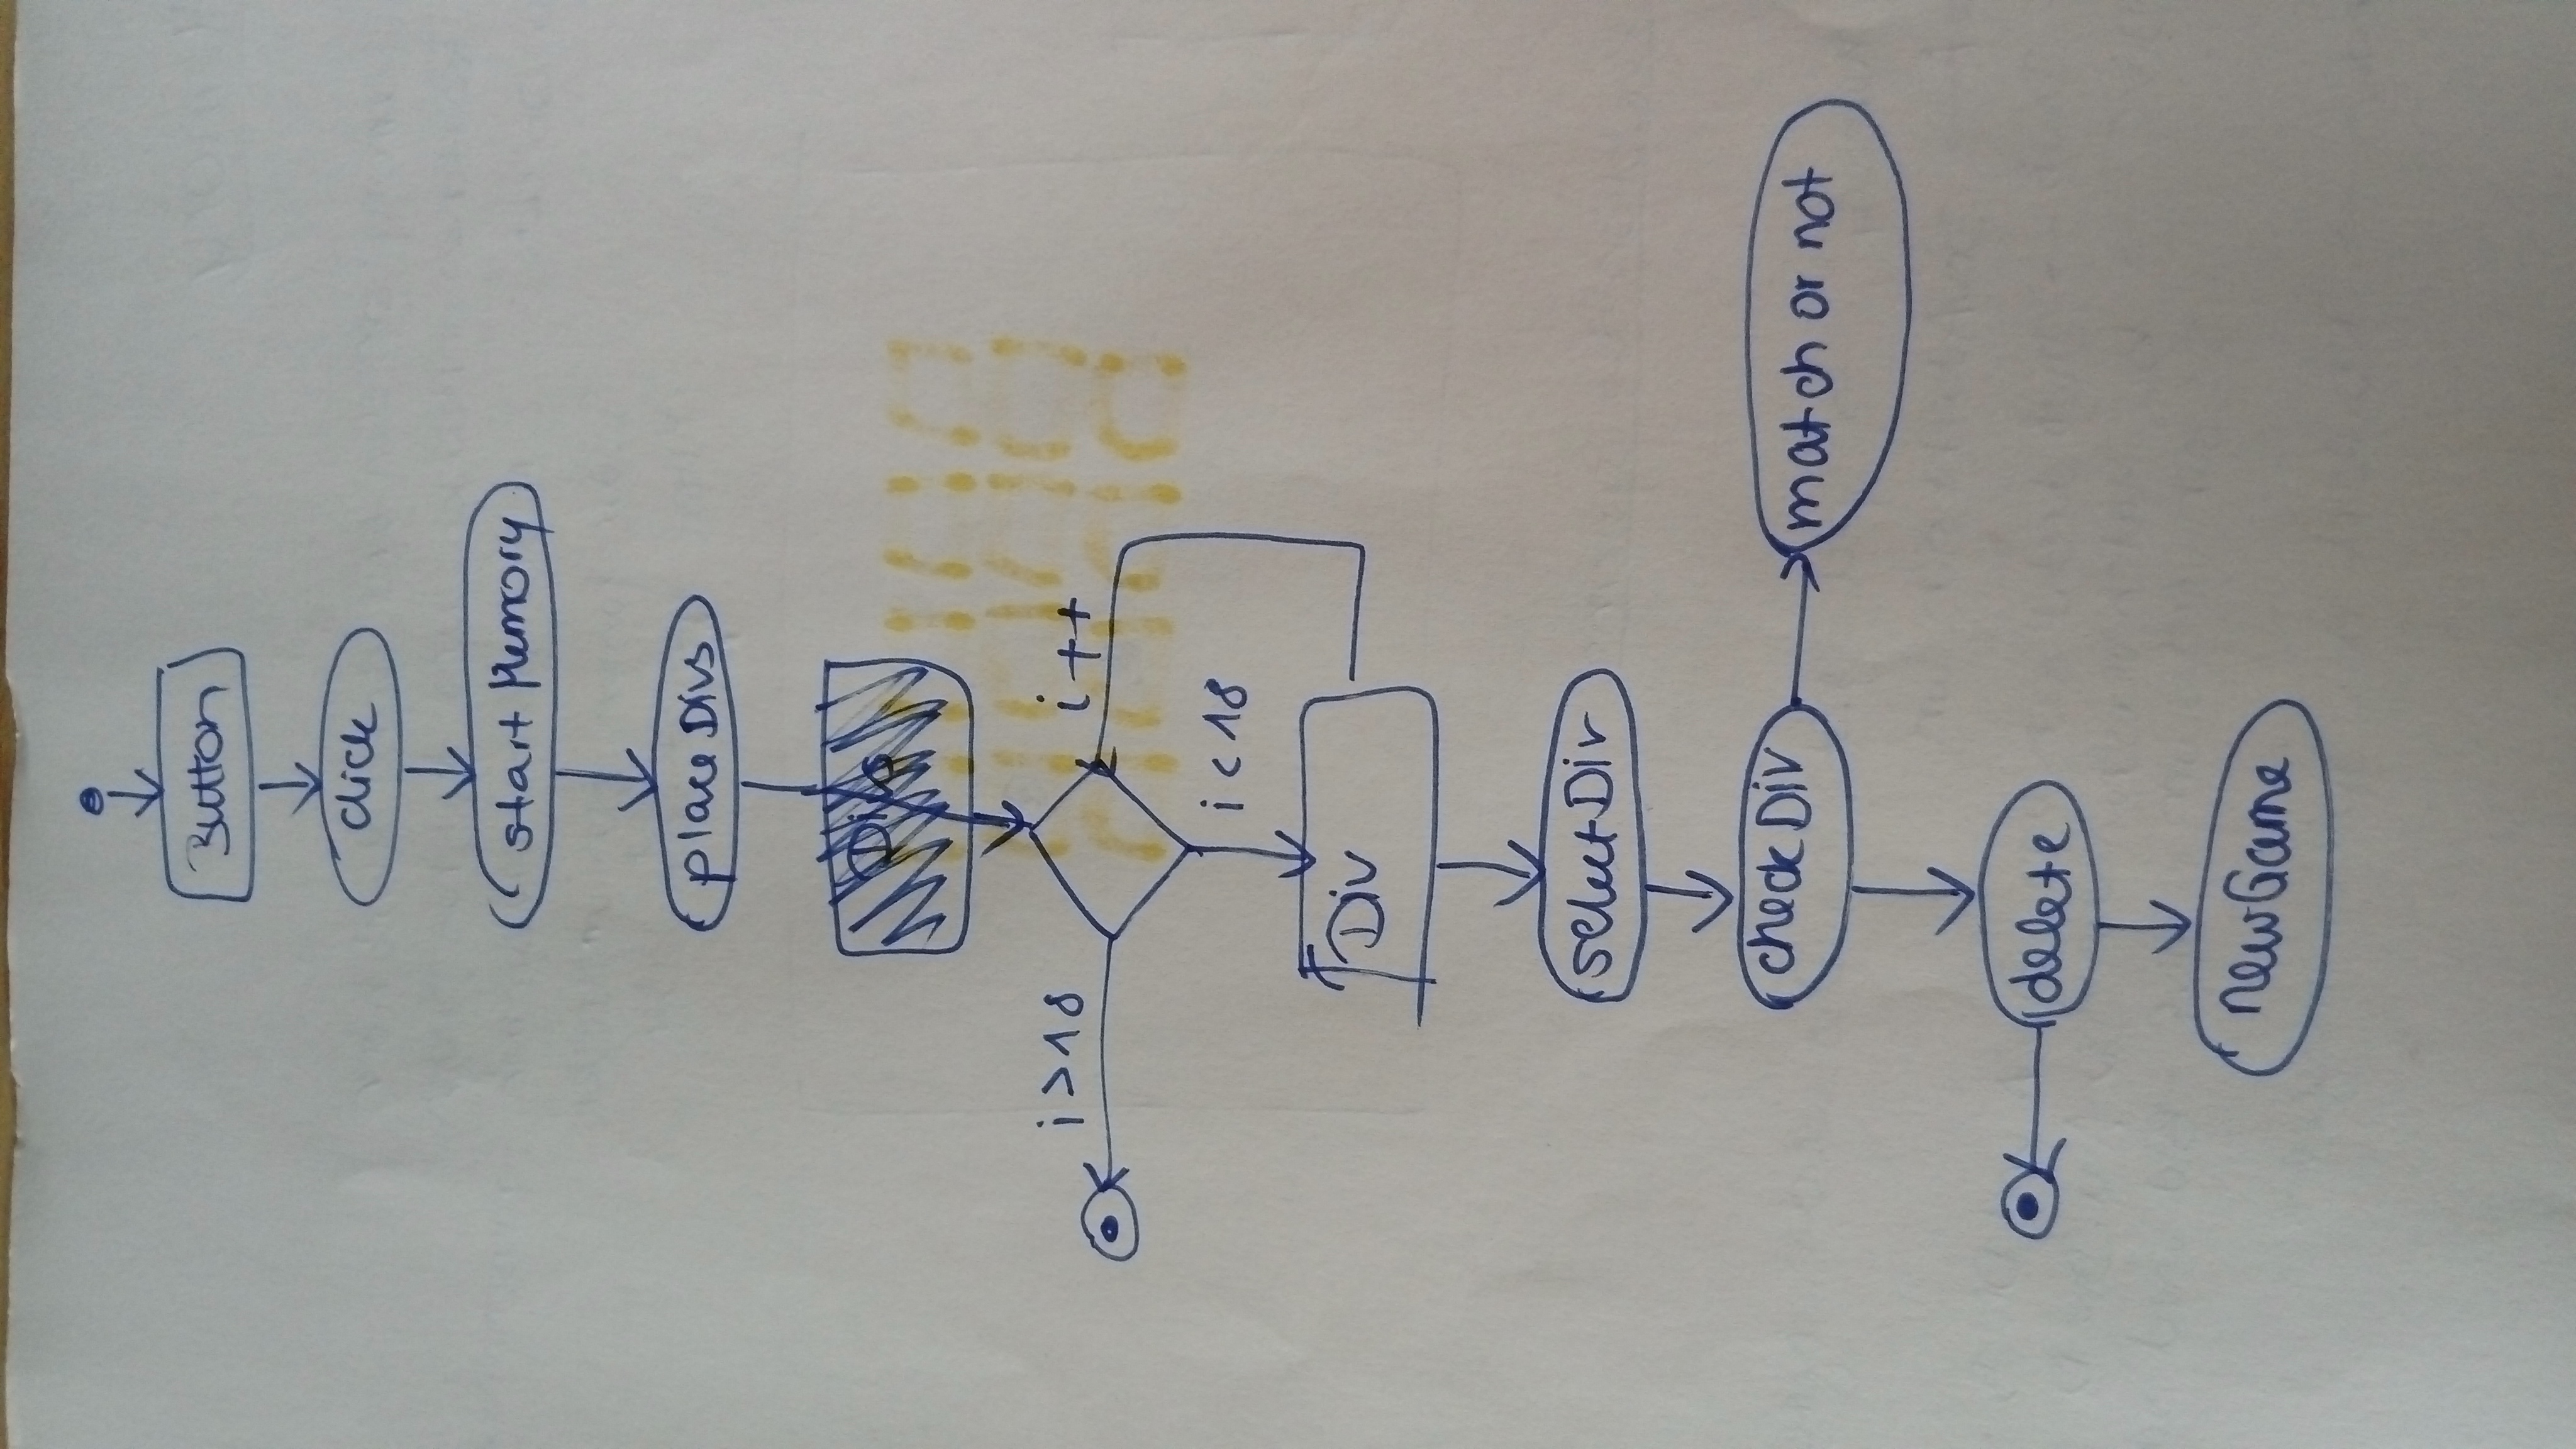 Button
click
start Memory
place Divs
i>18
i++
i<18
Div
selectDiv
check Div
match or not
delete
newGame